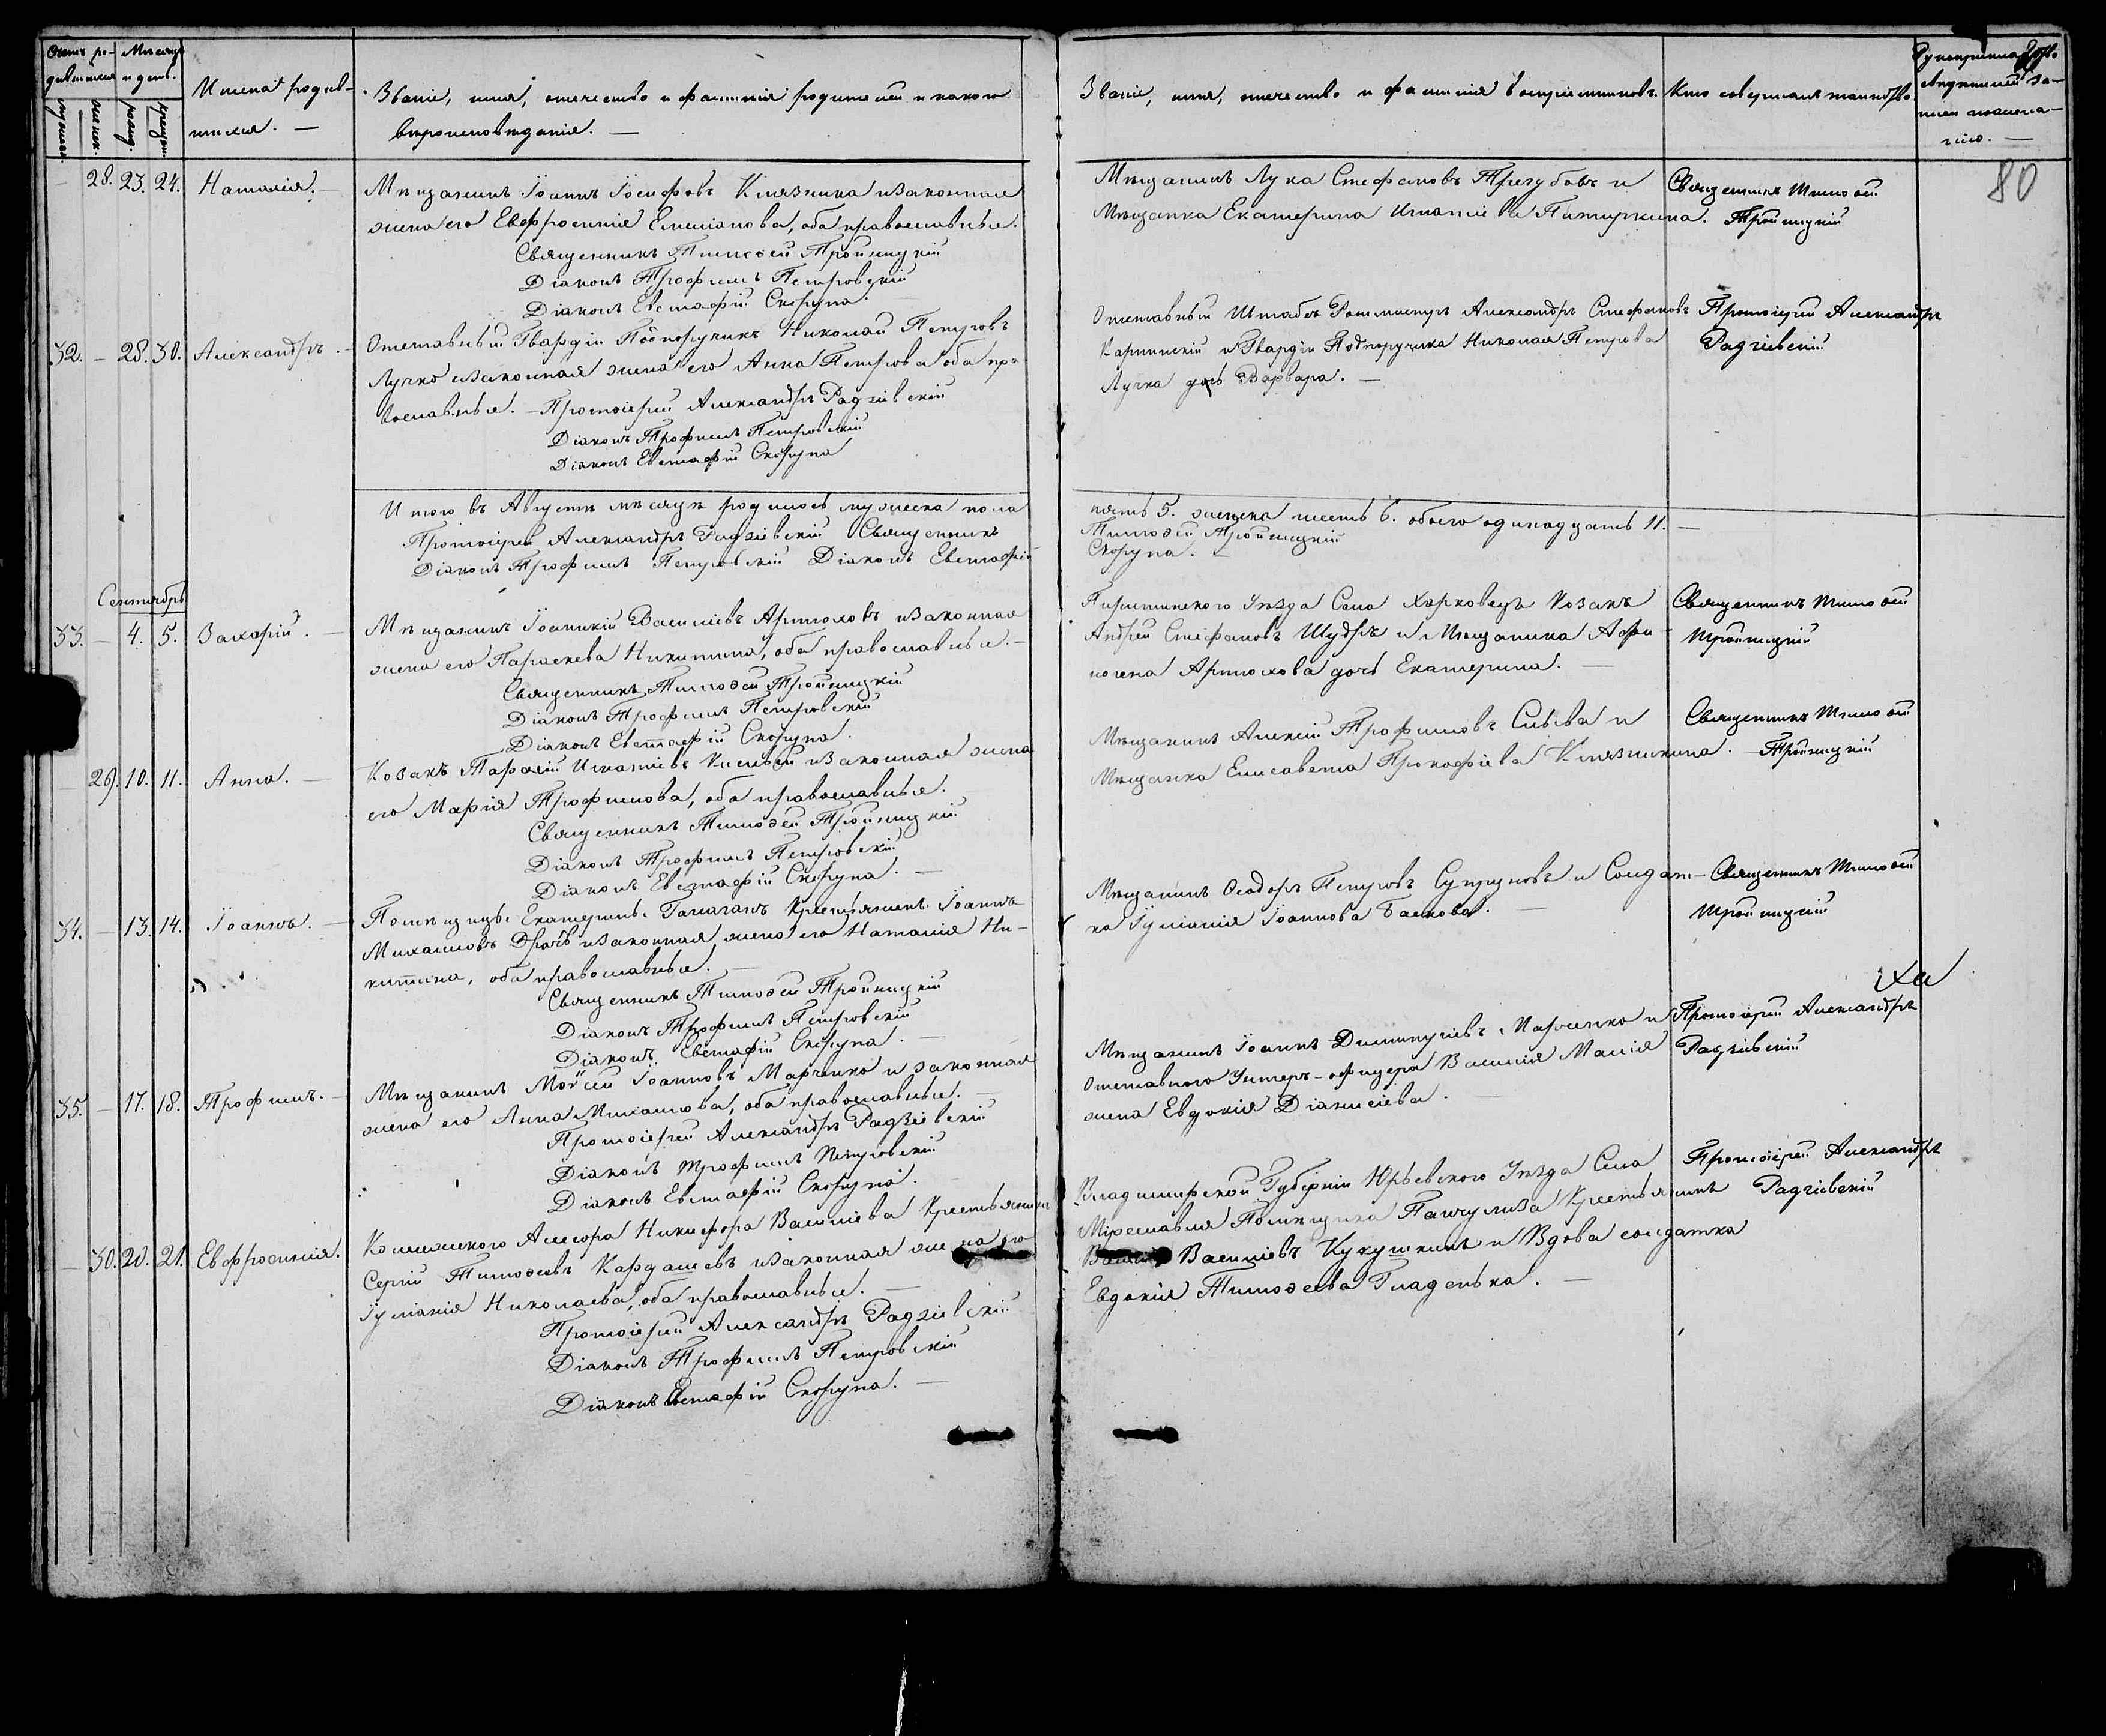 Счетъ ро-
дившихся
Мѣсяцъ
и день.
мужеска.
женск.
рожд.
крещен.
Имена родив-
шихся. —
Званіе, имя, отечество и фамилія родителей и какого
вѣроисповѣданія. —
Званіе, имя, отечество и фамилія воспріемниковъ.
Кто совершалъ таинство.
Рукоприкладство
свидѣтелей за-
писи по жела-
нію. —
80
— 28. 23. 24. Наталія. —
Мѣщанинъ Іоаннъ Іосифовъ Княгника и законная
жена его Евфросинія Емиліанова, оба православные.
Священникъ Тимоѳей Тройницкій
Діаконъ Трофимъ Петровскій
Діаконъ Евстафій Скорупа.
Мѣщанинъ Лука Стефановъ Трегубовъ и
Мѣщанка Екатерина Игнатіева Патиркина.
Священникъ Тимоѳей
Тройницкій
32. — 28. 30. Александръ. —
Отставный Гвардіи Подпоручикъ Николай Петровъ
Лучко и законная жена его Анна Петрова оба пра-
вославные. — Протоіерей Александръ Радзіевскій
Діаконъ Трофимъ Петровскій
Діаконъ Евстафій Скорупа
Отставный Штабсъ Ротмистръ Александръ Стефановъ
Карпинскій и Гвардіи Подпоручика Николая Петрова
Лучка дочь Варвара. —
Протоіерей Александръ
Радзіевскій
Итого въ Августѣ мѣсяцѣ родилось мужеска пола
пять 5. женска шесть 6. обоего одинадцать 11. —
Протоіерей Александръ Радзіевскій Священникъ
Тимоѳей Тройницкій
Діаконъ Трофимъ Петровскій Діаконъ Евстафій
Скорупа. —
Сентябрь
33. — 4. 5. Захарій. —
Мѣщанинъ Іоанникій Василіевъ Артюховъ и законная
жена его Параскева Никитина, оба православные. —
Священникъ Тимоѳей Тройницкій
Діаконъ Трофимъ Петровскій
Діаконъ Евстафій Скорупа.
Пирятинского Уѣзда Села Харковецъ Козакъ
Андрей Стефановъ Шудръ и Мѣщанина Афи-
ногена Артюхова дочь Екатерина. —
Священникъ Тимоѳей
Тройницкій
— 29. 10. 11. Анна. —
Козакъ Тарасій Игнатіевъ и законная жена
его Марія Трофимова, оба православные.
Священникъ Тимоѳей Тройницкій
Діаконъ Трофимъ Петровскій
Діаконъ Евстафій Скорупа. —
Мѣщанинъ Алексій Трофимовъ Слива и
Мѣщанка Елисавета Прокофіева Княгникина. —
Священникъ Тимоѳей
Тройницкій
34. — 13. 14. Іоаннъ. —
Помѣщицы Екатерины Галаганъ Крестьянинъ Іоаннъ
Михаиловъ и законная жена его Наталія Ни-
китина, оба православные. —
Священникъ Тимоѳей Тройницкій
Діаконъ Трофимъ Петровскій
Діаконъ Евстафій Скорупа. —
Мѣщанинъ Ѳеодоръ Петровъ Супруновъ и Солдат-
ка Іуліанія Іоаннова Баскова. —
Священникъ Тимоѳей
Тройницкій
35. — 17. 18. Трофимъ. —
Мѣщанинъ Мойсей Іоанновъ Марченко и законная
жена его Анна Михаилова, оба православные. —
Протоіерей Александръ Радзіевскій
Діаконъ Трофимъ Петровскій
Діаконъ Евстафій Скорупа.
Мѣщанинъ Іоаннъ Марченко и
Отставного Унтеръ-офицера Василія Малія
жена Евдокія Діанисіева. —
Протоіерей Александръ
Радзіевскій
— 30. 20. 21. Евфросинія.
Коллежского Асесора Никифора Василіева Крестьянинъ
Сергій Тимоѳеевъ Кардашевъ и законная жена его
Іуліанія Николаева, оба православные. —
Протоіерей Александръ Радзіевскій
Діаконъ Трофимъ Петровскій
Діаконъ Евстафій Скорупа. —
Владимирской Губерніи Юрьевского Уѣзда Села
Мірславля Помѣщика Крестьянинъ
Василіевъ Кукушкинъ и Вдова солдатка
Евдокія Тимоѳеева Гладенька. —
Протоіерей Александръ
Радзіевскій